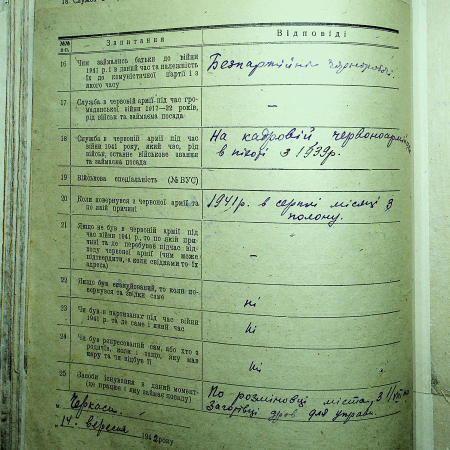 18. Служба в
№№ п-п.
Запитання
Відповіді
16
Чим займались батьки до війни
1941 р. і в даний час та належність
їх до комуністичної партії і з
якого часу
Безпартійні
17
Служба в червоній армії під час гро-
мадянської війни 1917—22 років,
рід військ та займаєма посада
—
18
Служба в червоній армії під час
війни 1941 року, який час, рід
військ, останнє військове звання
та займаєма посада
На кадровій червоноармієць
в піхоті з 1939р.
19
Військова спеціальність (№ ВУС)
20
Коли повернувся з червоної армії та
по якій причині
1941р. в серпні місяці з
полону.
21
Якщо не був в червоній армії під
час війни 1941 р., то по якій при-
чині та де перебував підчас від-
ходу червоної армії (чим може
підтвердити, а коли свідками то їх
адреса)
—
22
Якщо був евакуйований, то коли по-
вернувся та звідки саме
ні
23
Чи був в партизанах під час війни
1941 р. та де саме і який час
ні
24
Чи був репресований сам, або хто з
родичів, коли і защо, яку мав
кару та чи відбув її
ні
25
Засоби існування в даний момент
(де працює і яку займає посаду)
По розміновці міста, з
Загот
дров для управи.
Черкаси
14 вересня 1942 року